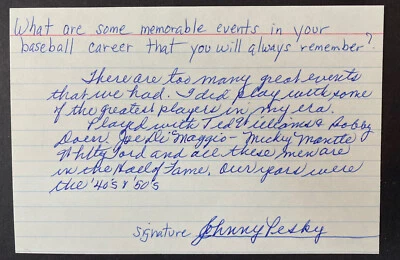 What are some memorable events in your
baseball career that you will always remember?
There are too many great events
that we had. I did play with some
of the greatest players in my era.
Played with Ted Williams & Bobby
Doerr. Joe DiMaggio - Micky Mantle
Whity Ford and all these men are
in the Hall of Fame. Our years were
the '40's & '50's
signature Johnny Pesky